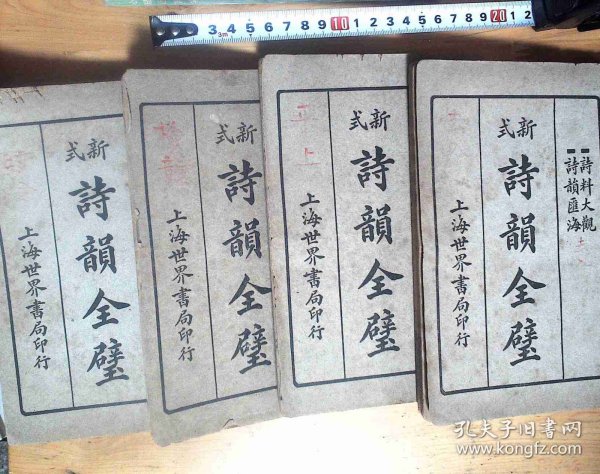 新式
詩韻全璧
上海世界書局印行
新式
詩韻全璧
上海世界書局印行
新式
詩韻全璧
上海世界書局印行
詩料大觀
詩韻匯海
新式
詩韻全璧
上海世界書局印行
3m 2 3 4 5 6 7 8 9 10 1 2 3 4 5 6 7 8 9 20 1 2
孔夫子旧书网
www.kongfz.com